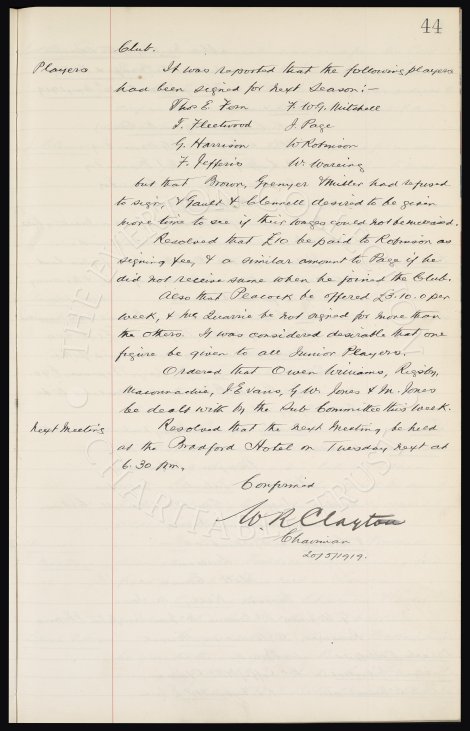 44
Club.
Players It was reported that the following players
had been signed for next season:-
Thos E. Fern F. W. G. Mitchell
T. Fleetwood J. Page
G. Harrison W Robinson
F. Jefferis W. Wareing
but that Brown, Grenyer & Miller had refused
to sign, & Gault & Clennell desired to be given
more time to see if their wages could not be increased.
Resolved that £10 be paid to Robinson as
signing fee, & a similar amount to Page if he
did not receive same when he joined the Club.
Also that Peacock be offered £3.10.0 per
week, & Mc Quarrie be not signed for more than
the others. It was considered desirable that one
figure be given to all Junior Players.
Ordered that Owen Williams, Rigsby,
Macconnachie, J Evans, G. W. Jones & M. Jones
be dealt with by the Sub Committee this week.
Next Meeting Resolved that the next Meeting be held
at the Bradford Hotel on Tuesday next at
6.30 pm.
Confirmed
W. R Clayton
Chairman
20/5/1919.
© THE EVERTON
CHARITABLE TRUST